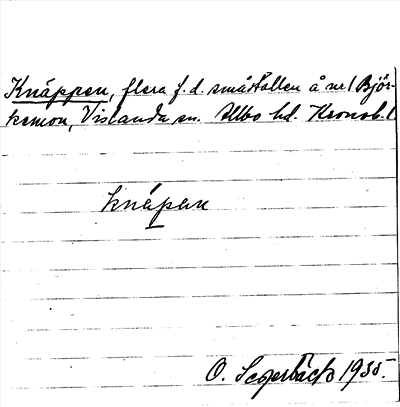 Knäppen, flera f.d. småställen å nr 1 Björ-
kemon, Vislanda sn. Allbo hd. Kronob. l
knápan
O. Segerbäck 1935.